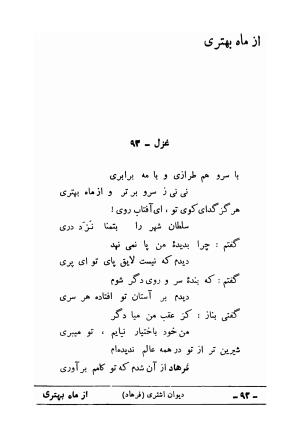 از ماه بهتری
غزل - ۹۳
با سرو هم طرازی و با مه برابری
نی نی ز سرو برتر و از ماه بهتری
هرگز گدای کوی تو، ای آفتاب روی!
سلطان شهر را بتمنا نزد دری
گفتم: چرا بدیدهٔ من پا نمی نهد
دیدم که نیست لایق پای تو ای پری
گفتم: که بندهٔ سر و روی دگر شوم
دیدم بر آستان تو افتاده هر سری
گفتی بناز: کز عقب من میا دگر
من خود باختیار نیایم، تو میبری
شیرین تر از تو در همه عالم ندیده‌ام
فرهاد از آن شدم که تو کامم برآوری
از ماه بهتری
دیوان اشتری (فرهاد)
- ۹۳ -